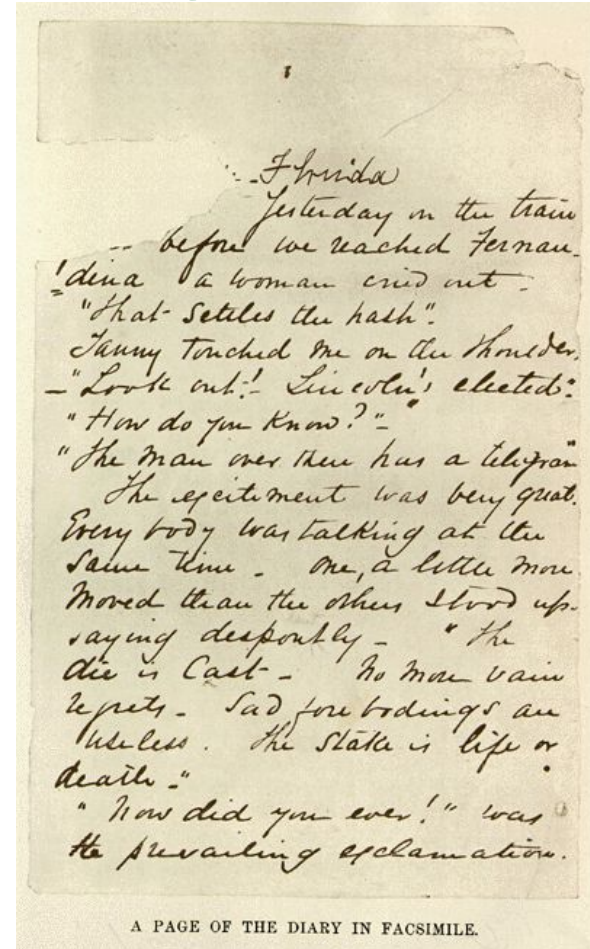 Florida
Yesterday on the train
-- before we reached Fernan-
dina a woman cried out -
"That settles the hash".
Tanny touched me on the shoulder.
- "Look out! - Lincoln's elected".
"How do you know?" -
"The man over there has a telegram"
The excitement was very great.
Every body was talking at the
same time - One, a little more
moved than the others stood up -
saying despontly - "The
die is cast - No more vain
regrets - Sad forebodings are
useless. The stake is life or
death -"
"Now did you ever!" was
the prevailing exclamation.
A PAGE OF THE DIARY IN FACSIMILE.